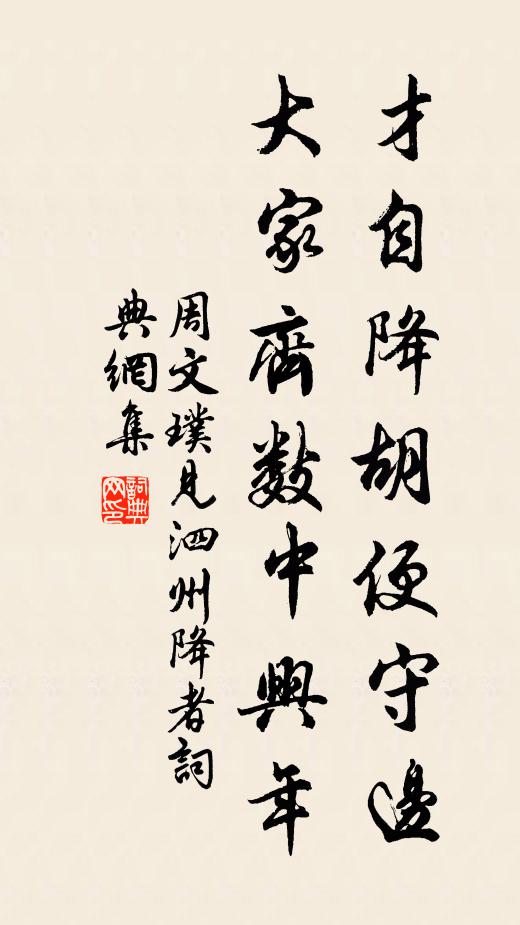 才自降胡便守邊
大家齊數中興年
周文璞見泗州降者詞
典網集
詞典網印